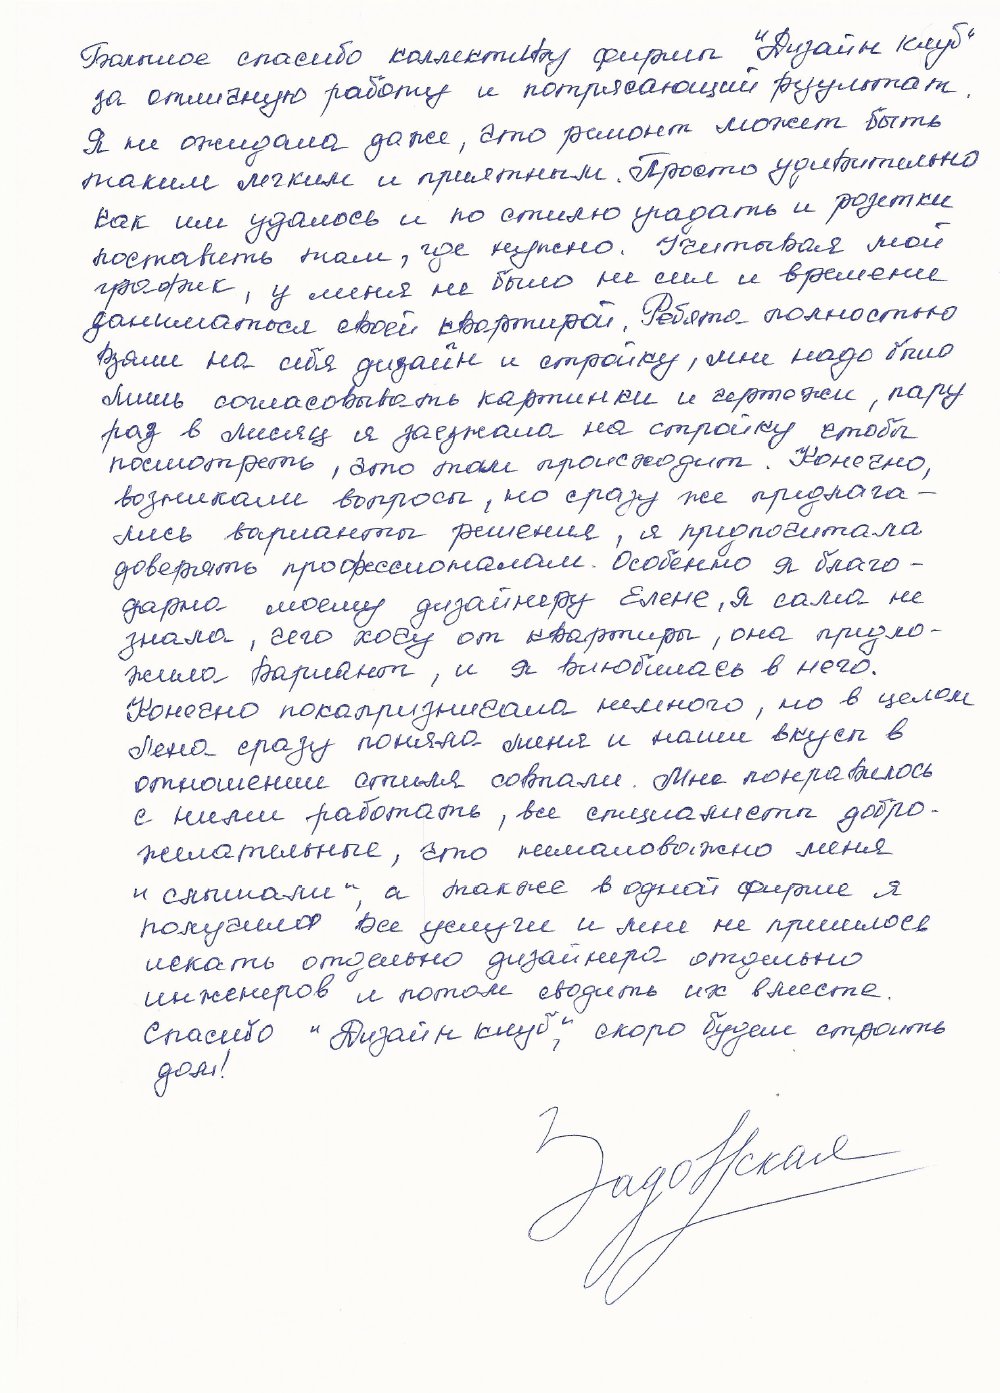 Большое спасибо коллективу фирмы "Дизайн клуб"
за отличную работу и потрясающий результат.
Я не ожидала даже, что ремонт может быть
таким легким и приятным. Просто удивительно
как им удалось и по стилю угадать и розетки
поставить там, где нужно. Учитывая мой
график, у меня не было ни сил и времени
заниматься своей квартирой. Ребята полностью
взяли на себя дизайн и стройку, мне надо было
лишь согласовывать картинки и чертежи, пару
раз в месяц я заезжала на стройку чтобы
посмотреть, что там происходит. Конечно,
возникали вопросы, но сразу же предлага-
лись варианты решения, я предпочитала
доверять профессионалам. Особенно я благо-
дарна моему дизайнеру Елене, я сама не
знала, чего хочу от квартиры, она предло-
жила вариант, и я влюбилась в него.
Конечно покапризничала немного, но в целом
Лена сразу поняла меня и наши вкусы в
отношении стиля совпали. Мне понравилось
с ними работать, все специалисты добро-
желательные, что немаловажно меня
"слышали", а также в одной фирме я
получила все услуги и мне не пришлось
искать отдельно дизайнера отдельно
инженеров и потом сводить их вместе.
Спасибо "Дизайн клуб", скоро будем строить
дом!